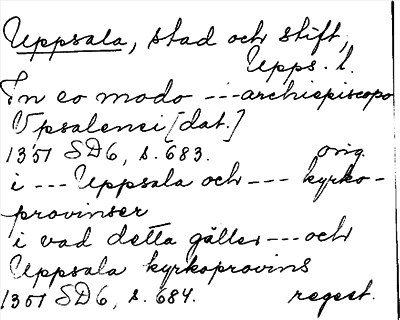 Uppsala, stad och stift,
Upps. l.
In eo modo --- archiepiscopo
Vpsalensi [dat.]
1351 SD6, s. 683. orig.
i --- Uppsala och --- kyrko-
provinser
i vad detta gäller --- och
Uppsala kyrkoprovins
1351 SD6, s. 684. regest.